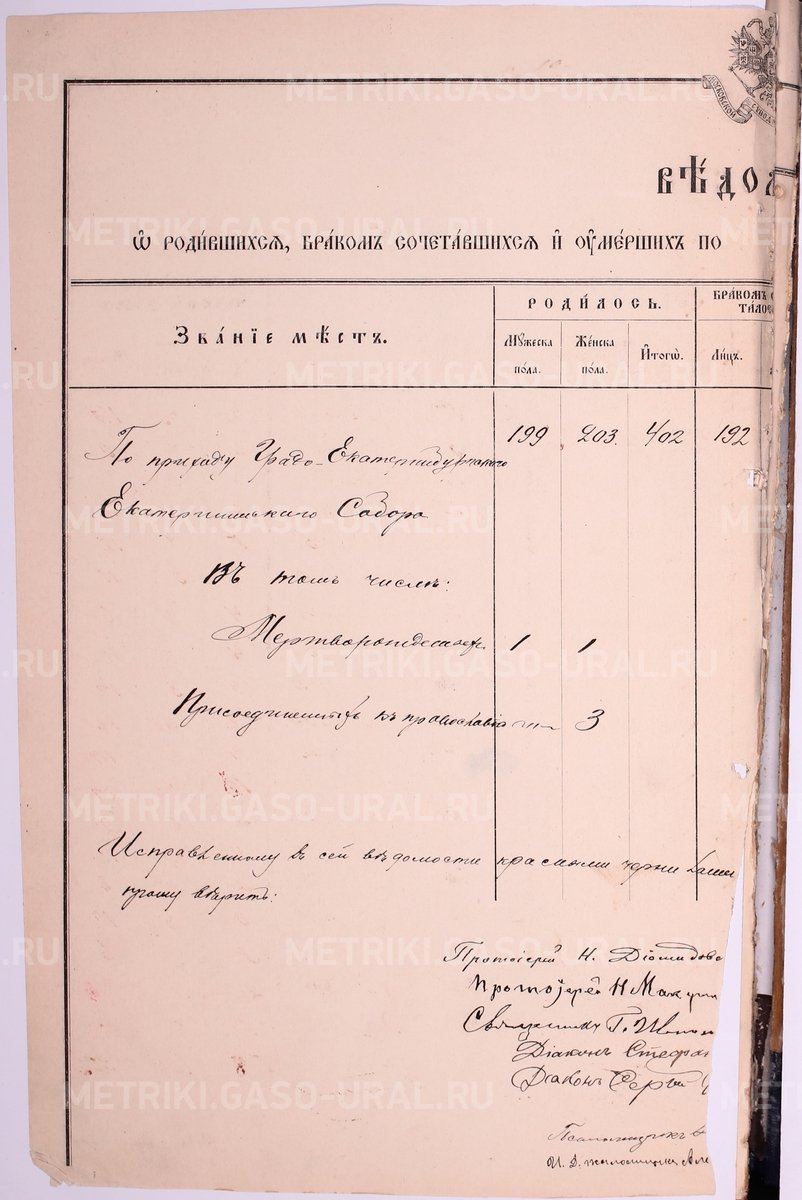 МОСКОВСКОЙ
ВѢ́ДО
Ѡ҆ РОДИ́ВШИХСѦ, БРА́КОМЪ СОЧЕТА́ВШИХСѦ И҆ ОУ҆МЕ́РШИХЪ ПО
Зва́нїе мѣ́стъ.
РОДИ́ЛОСЬ.
БРА́КОМЪ
Мꙋ́жеска по́ла.
Же́нска по́ла.
И҆того̀.
Ли́цъ.
По приходу Градо-Екатеринбургскаго 199 203. 402 192
Екатерининскаго Собора
Въ томъ числѣ:
Мертворожденныхъ 1 1
Присоединенныхъ къ православію 3
Исправленному въ сей вѣдомости красными чернилами
прошу вѣрить:
Протоіерей Н. Діомидовъ
Протоіерей Н
Священникъ Г.
Діаконъ Стефан
Діаконъ Сергѣй
Псаломщикъ
И. д. псаломщика Але
METRIKI.GASO-URAL.RU